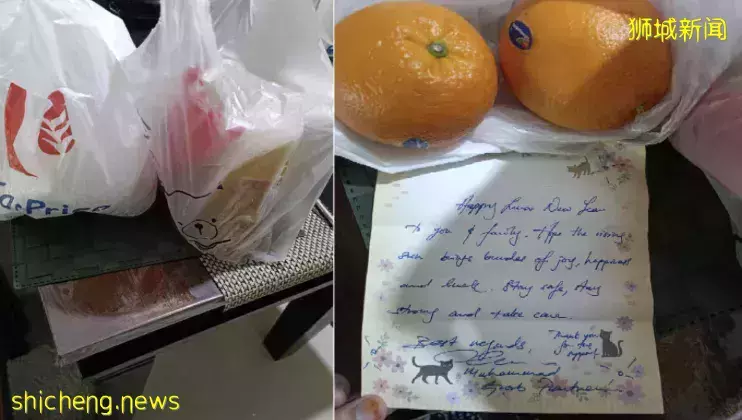 狮城新闻
Happy Lunar New Year
To you & family. Hope the rising
sun brings bundles of joy, happiness
and luck. Stay safe, stay
strong and take care.
Best regards,
Thank you
for the
Muhammad
Grab
shicheng.news